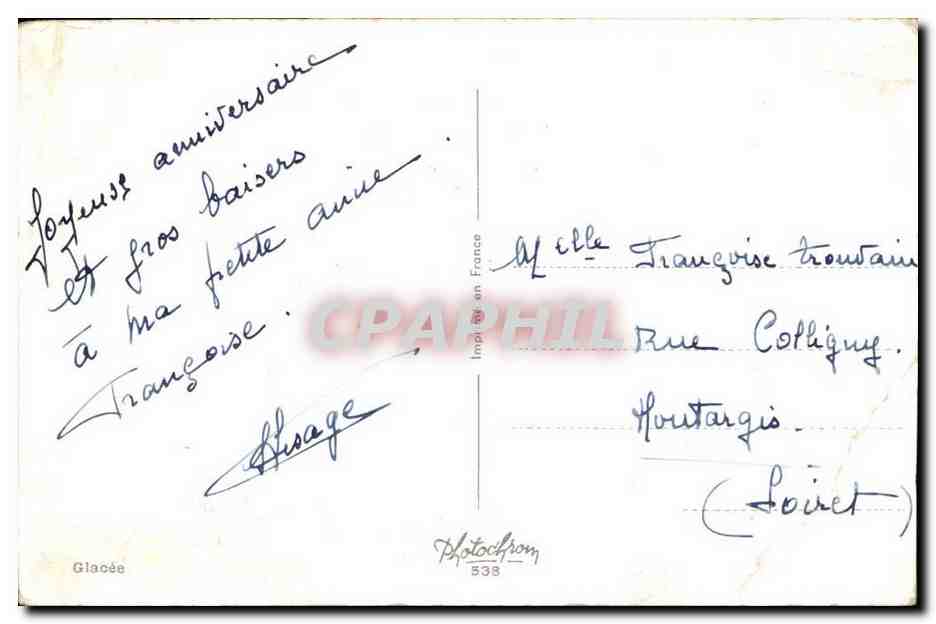 Joyeux anniversaire
et gros baisers
à ma petite amie
Françoise.
CPAPHIL
Imprimé en France
Melle Françoise
Rue Colligny.
Montargis.
(Loiret)
Photochrom
538
Glacée